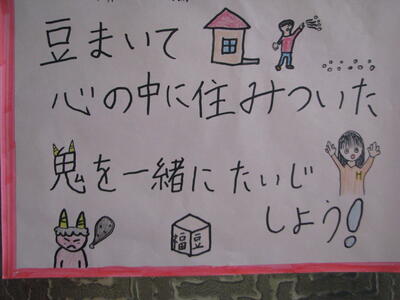 豆まいて
心の中に住みついた
鬼を一緒にたいじ
しよう!
H
福豆